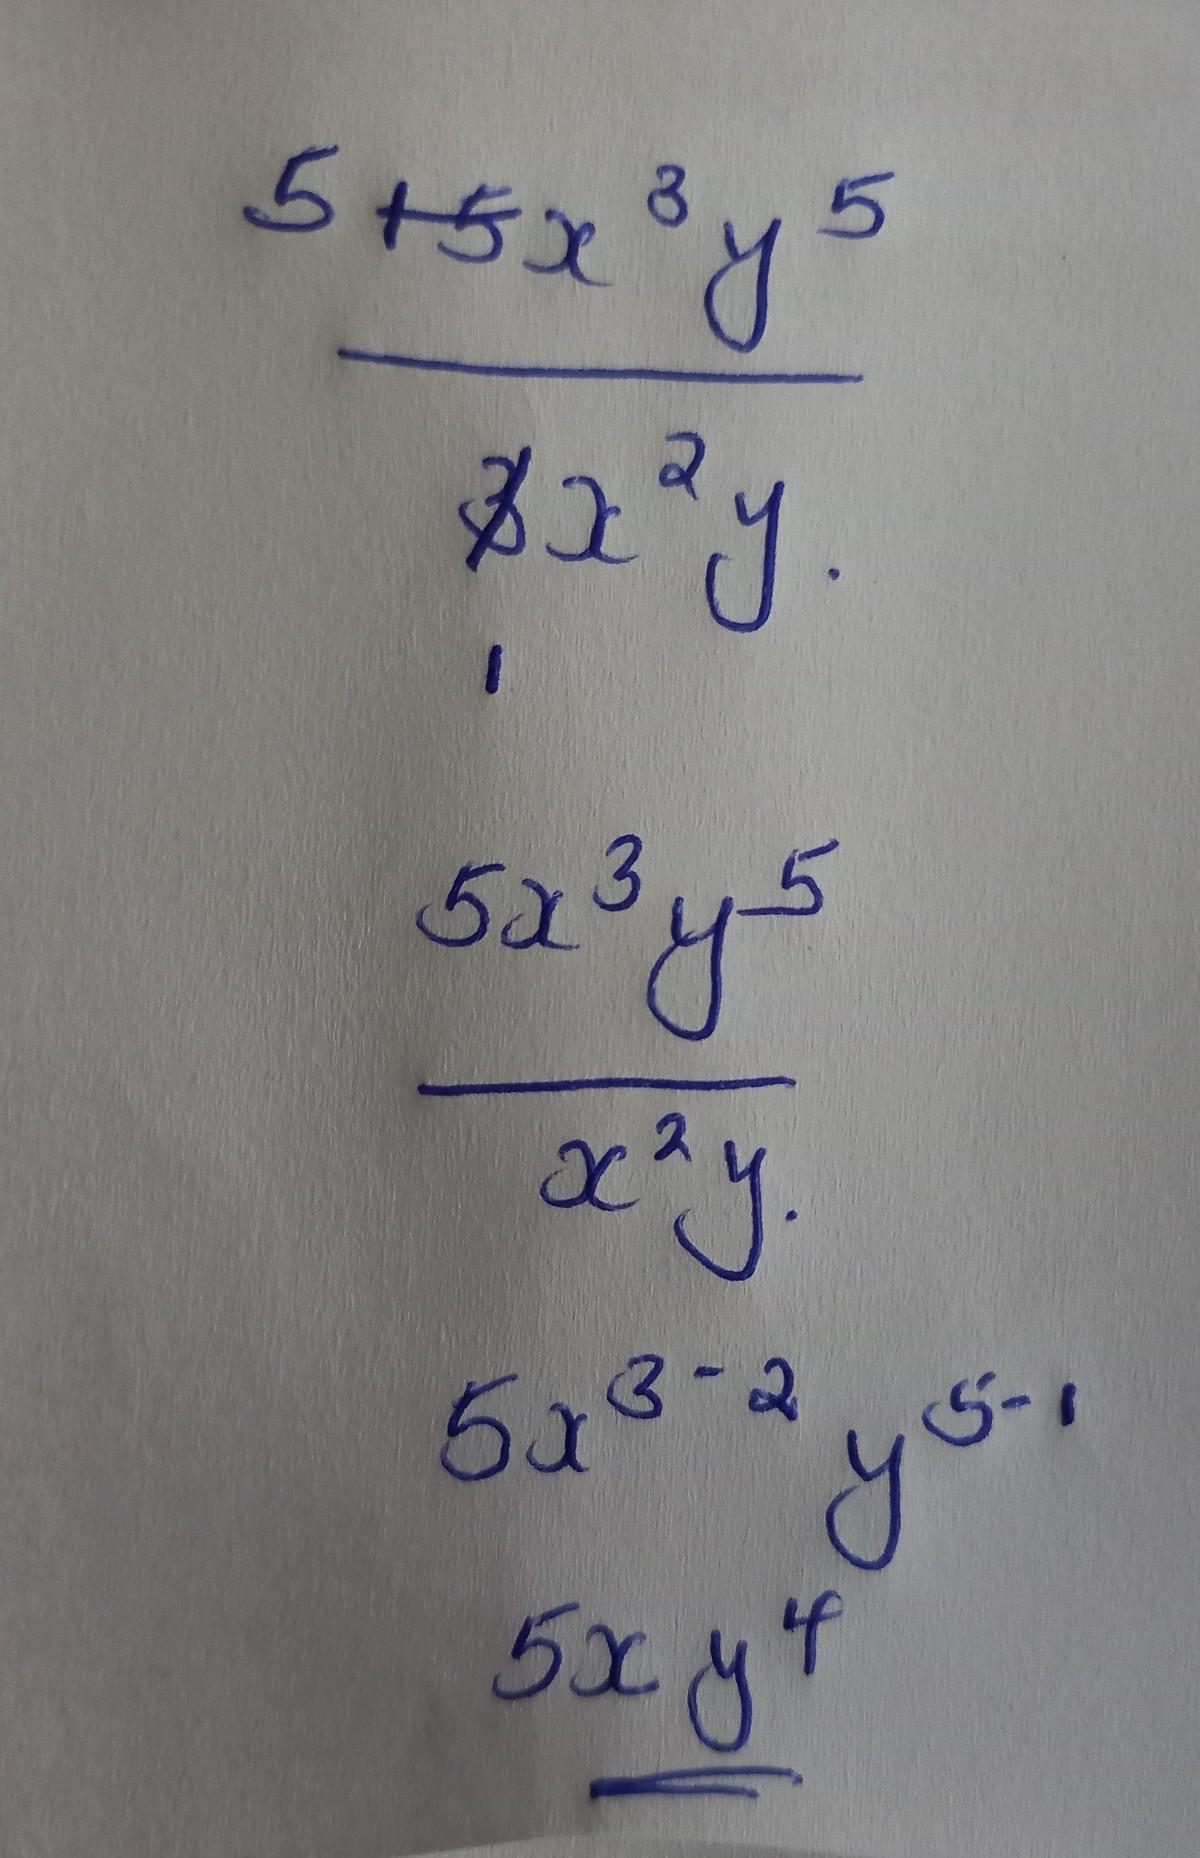 5 15x³y⁵
3x²y.
1
5x³y⁵
x²y.
5x³⁻²y⁵⁻¹
5xy⁴